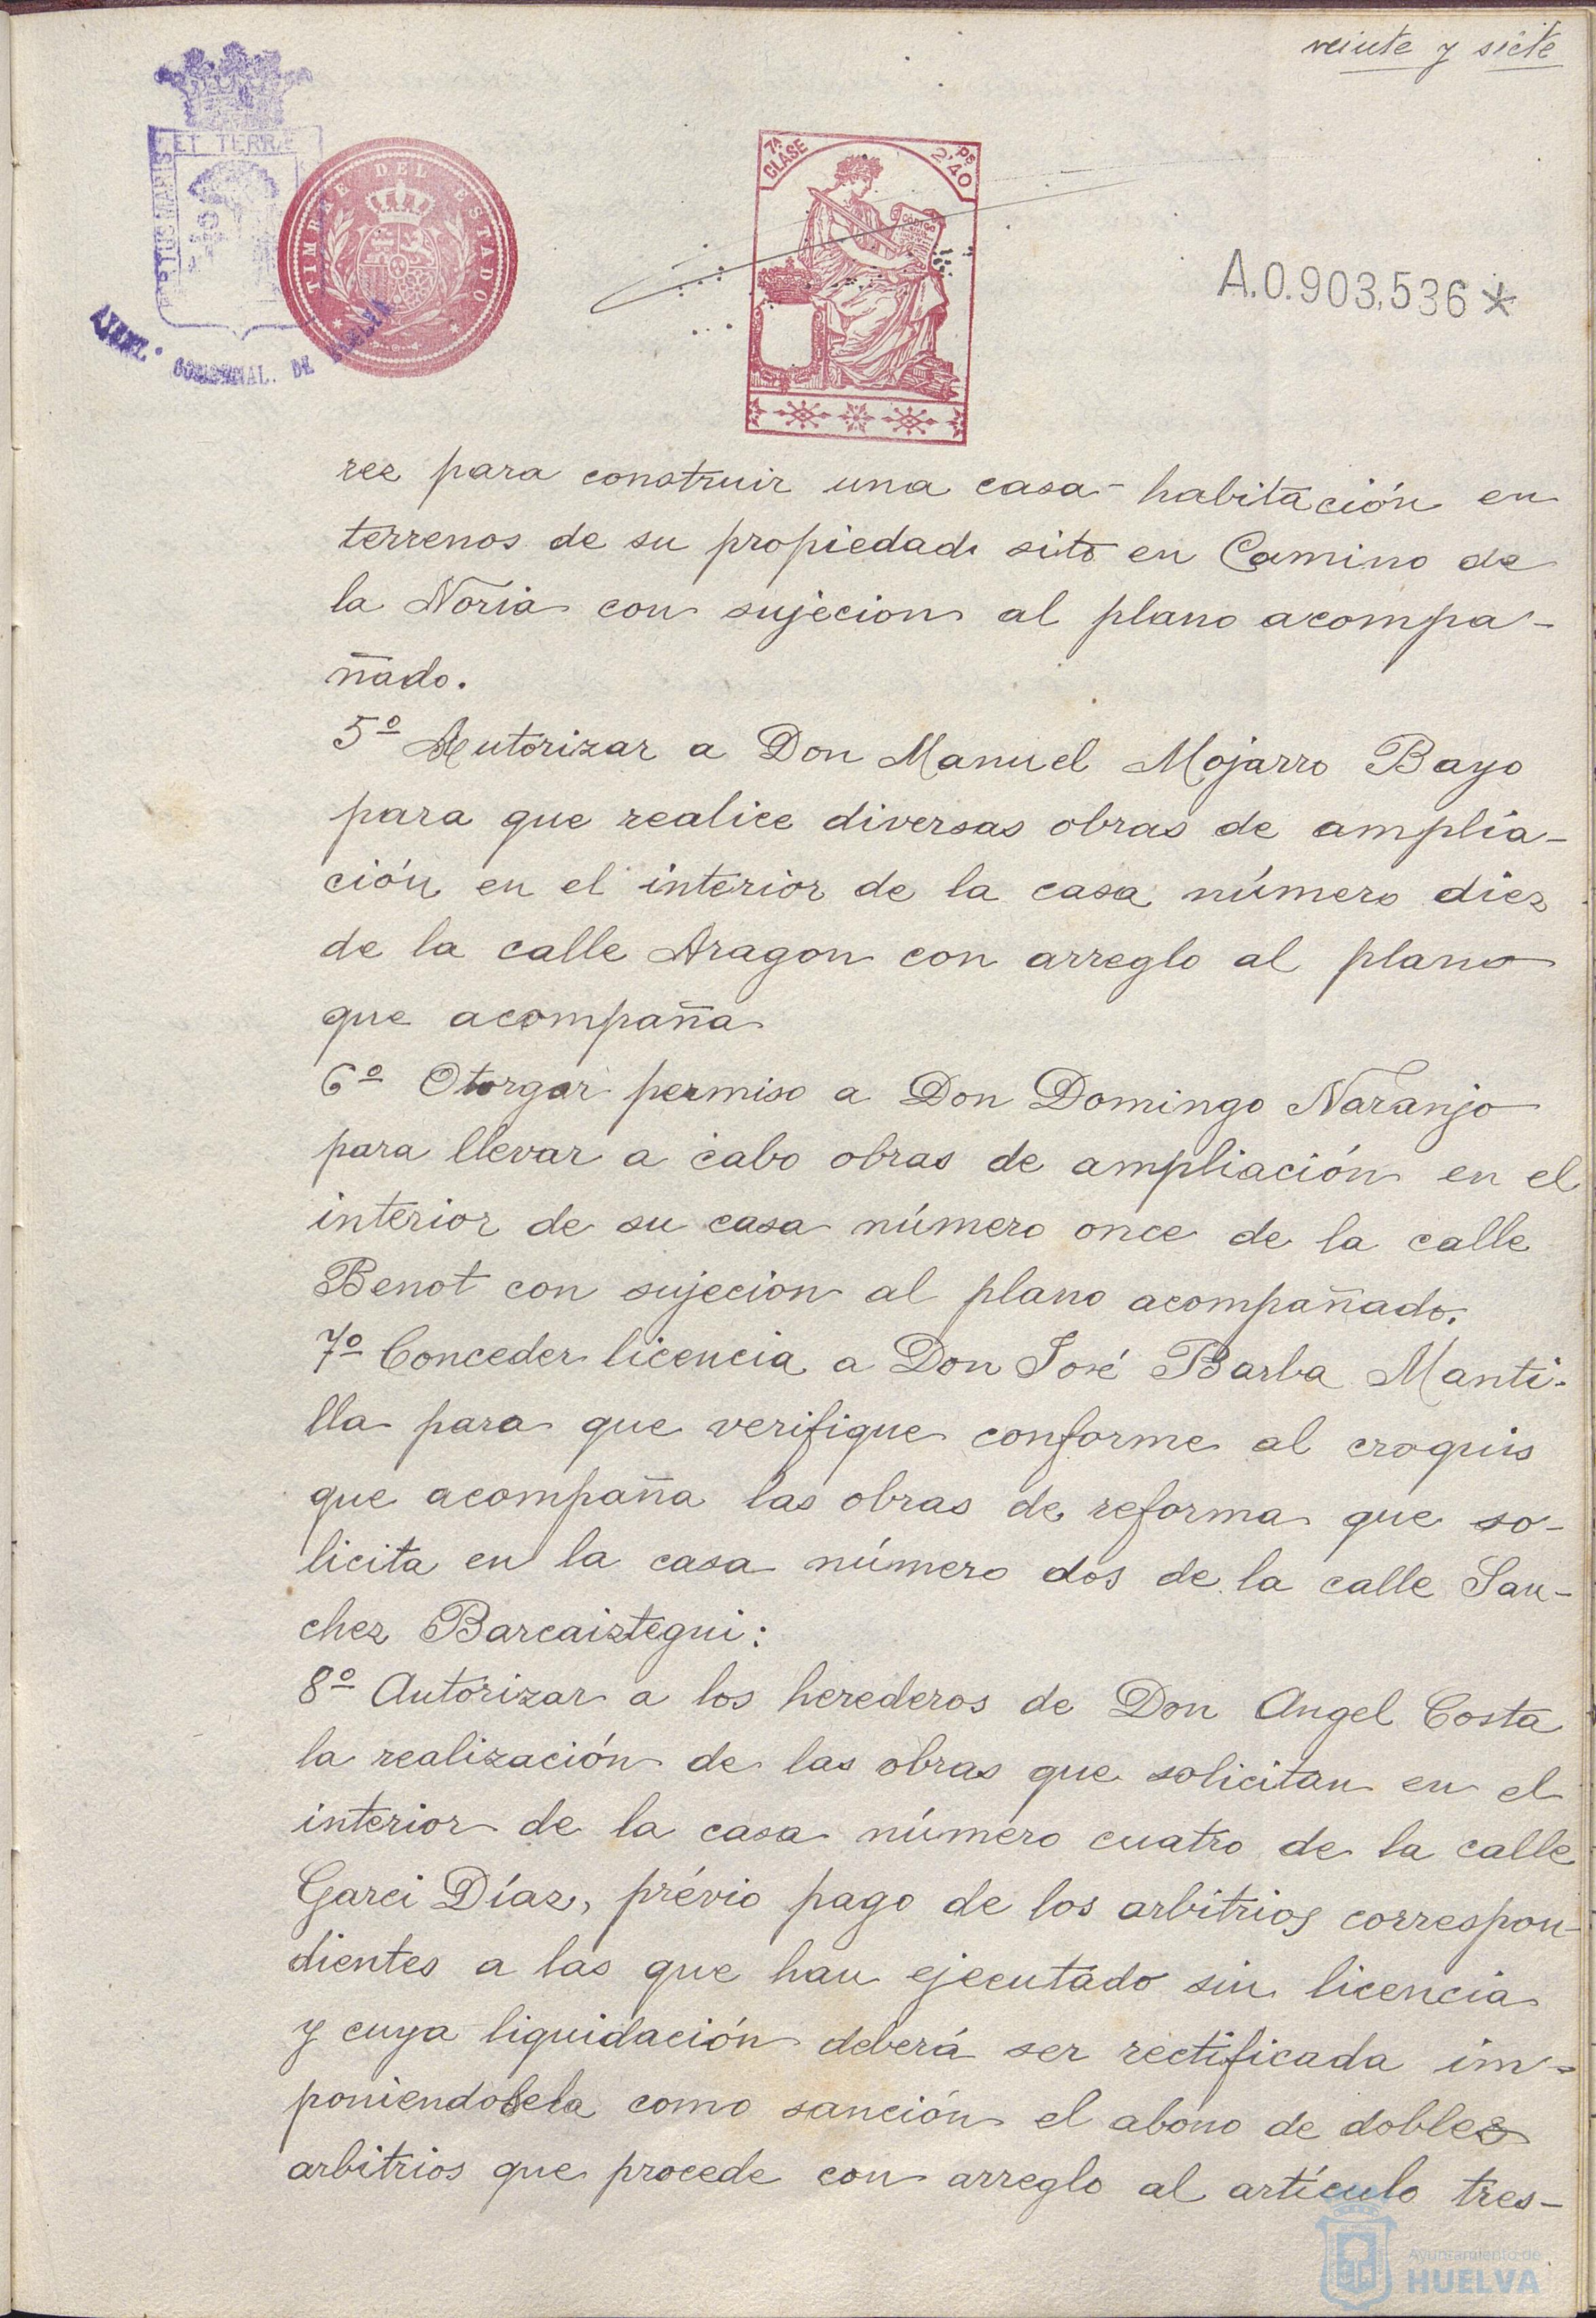 veinte y siete
ET TERRÆ
TIMBRE DEL ESTADO
7ª CLASE
2'40 PS
A.0.903,536*
COMISION MAL. DE
rez para construir una casa-habitación en
terrenos de su propiedad sito en Camino de
la Noria con sujecion al plano acompa-
ñado.
5º Autorizar a Don Manuel Mojarro Bayo
para que realice diversas obras de amplia-
ción en el interior de la casa número diez
de la calle Aragon con arreglo al plano
que acompaña
6º Otorgar permiso a Don Domingo Naranjo
para llevar a cabo obras de ampliación en el
interior de su casa número once de la calle
Benot con sujecion al plano acompañado.
7º Conceder licencia a Don José Barba Manti-
lla para que verifique conforme al croquis
que acompaña las obras de reforma que so-
licita en la casa número dos de la calle San-
chez Barcaiztegui:
8º Autorizar a los herederos de Don Angel Costa
la realización de las obras que solicitan en el
interior de la casa número cuatro de la calle
Garci Díaz, prévio pago de los arbitrios correspon-
dientes a las que han ejecutado sin licencia
y cuya liquidación deberá ser rectificada im-
poniendosela como sanción el abono de dobles
arbitrios que procede con arreglo al artículo tres-
Ayuntamiento de
HUELVA